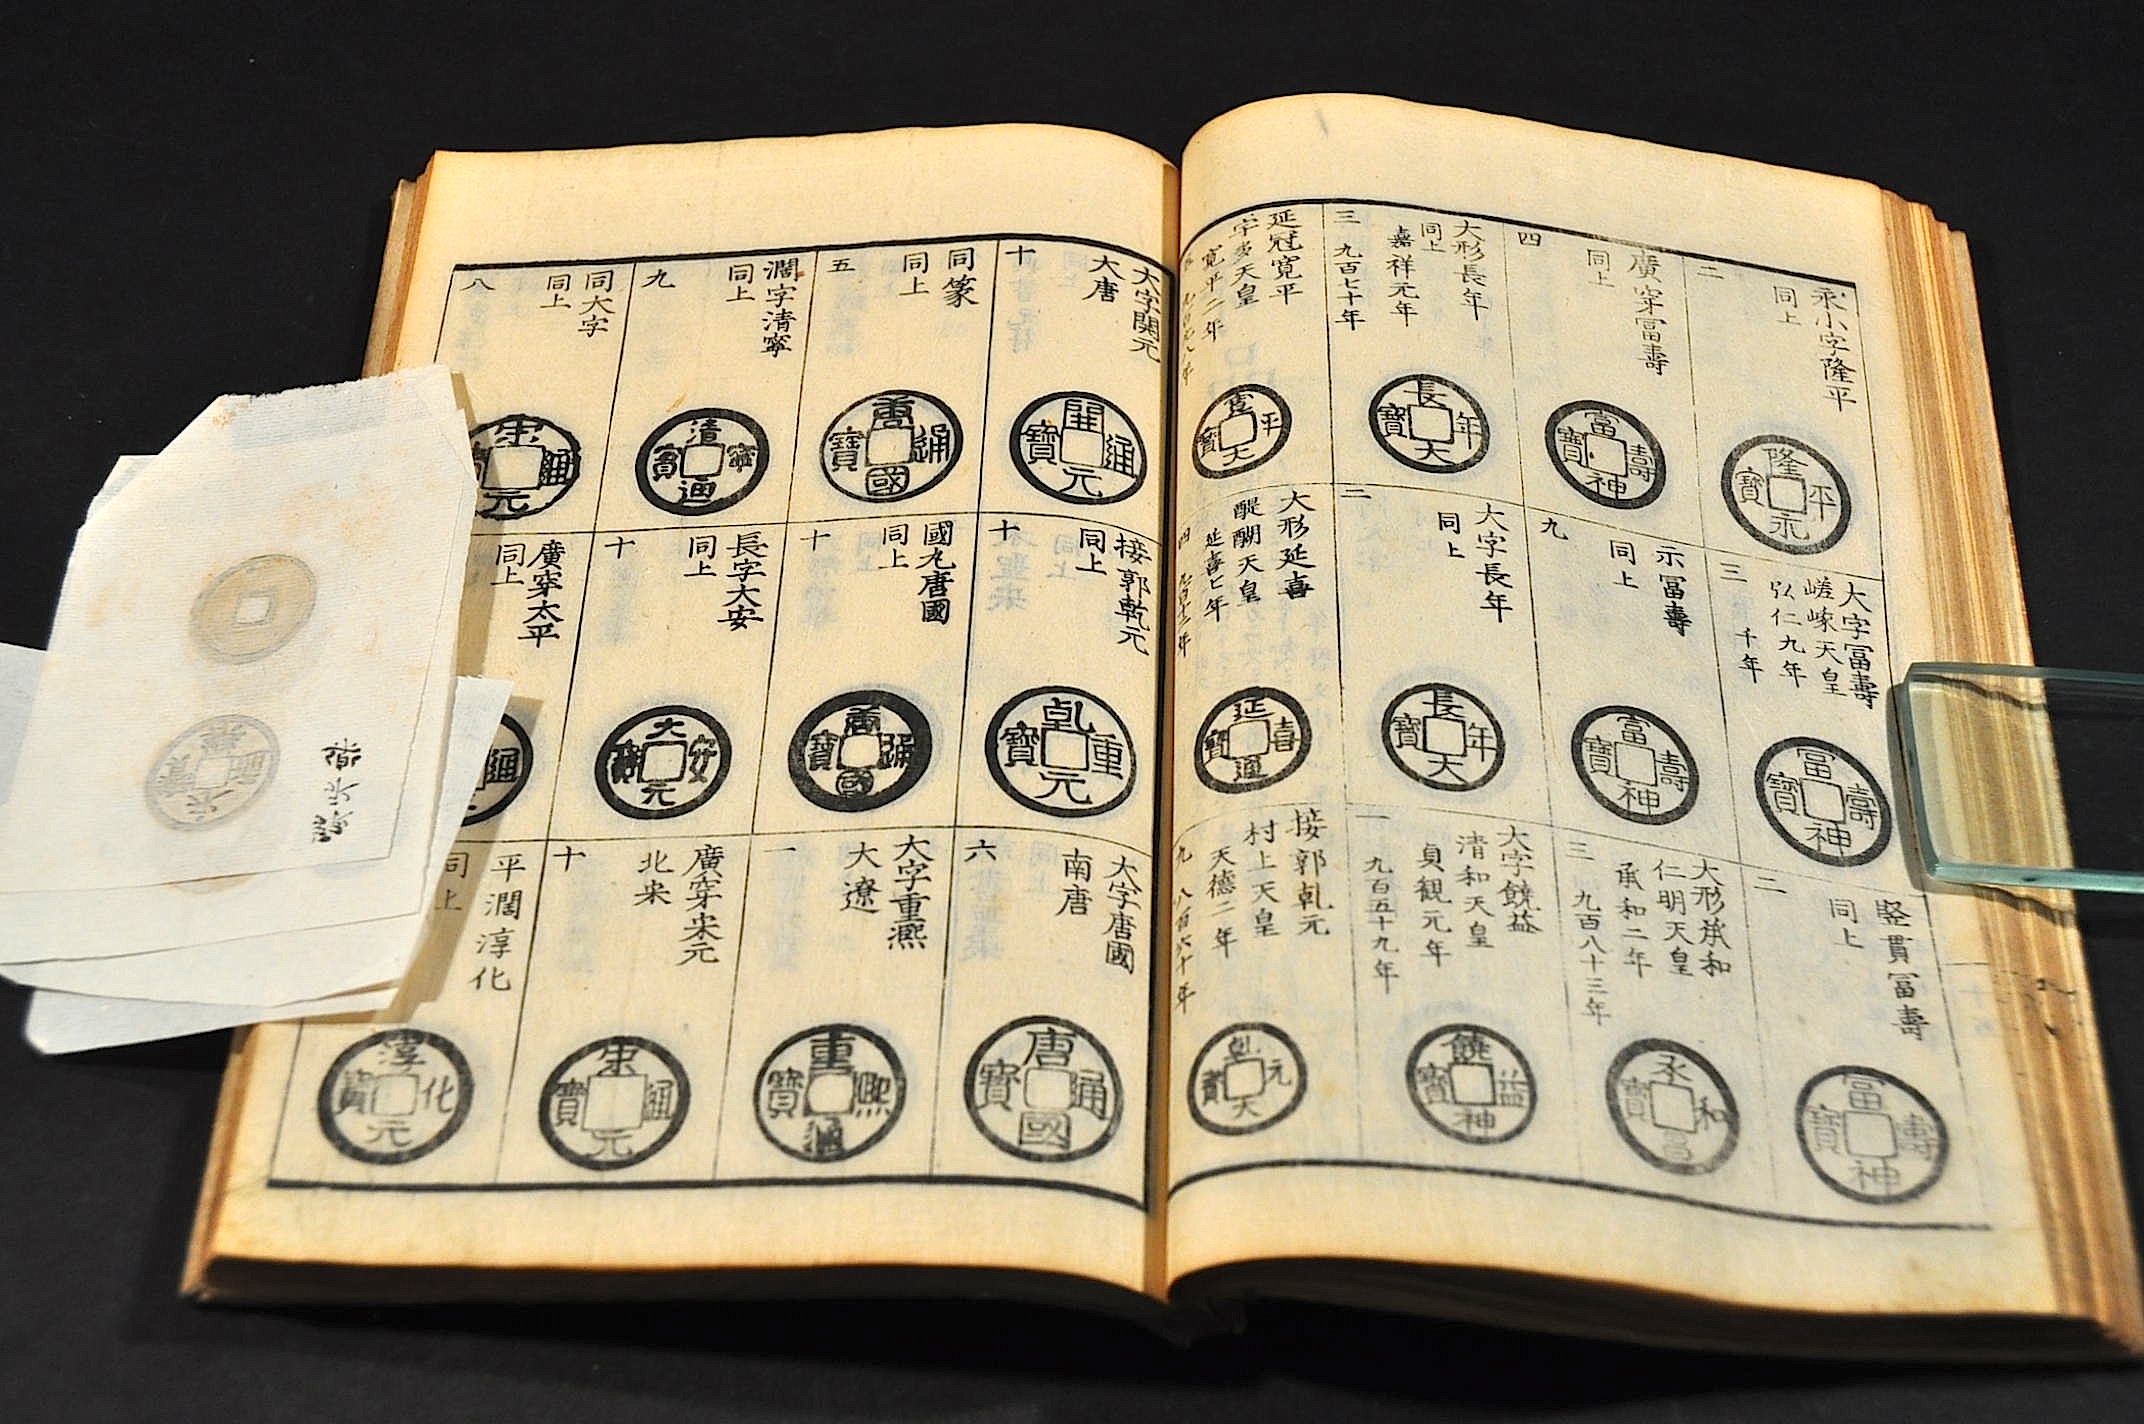 永小字隆平
同上
二
隆平永寶
大字冨壽
嵯峨天皇
弘仁九年
千年
三
冨壽神寶
竪貫冨壽
同上
二
冨壽神寶
廣穿冨壽
同上
四
富壽神寶
示冨壽
同上
九
富壽神寶
大形承和
仁明天皇
承和二年
九百八十三年
三
承和昌寶
大形長年
同上
嘉祥元年
九百七十年
三
長年大寶
大字長年
同上
二
長年大寶
大字饒益
清和天皇
貞観元年
九百五十九年
一
饒益神寶
延冠寛平
宇多天皇
寛平二年
寛平大寶
大形延喜
醍醐天皇
延喜七年
四
延喜通寶
接郭乹元
村上天皇
天德二年
八百六十年
九
乹元大寶
大字開元
大唐
十
開通元寶
接郭乾元
同上
十
乹重元寶
大字唐國
南唐
六
唐通國寶
同篆
同上
五
唐通國寶
國九唐國
同上
十
唐通國寶
大字重熈
大遼
一
重熈通寶
濶字清寧
同上
九
清寧通寶
長字大安
同上
十
大安元寶
廣穿宋元
北宋
十
宋通元寶
同大字
同上
八
宋通元
廣穿太平
同上
通
平濶淳化
同上
淳化元寶